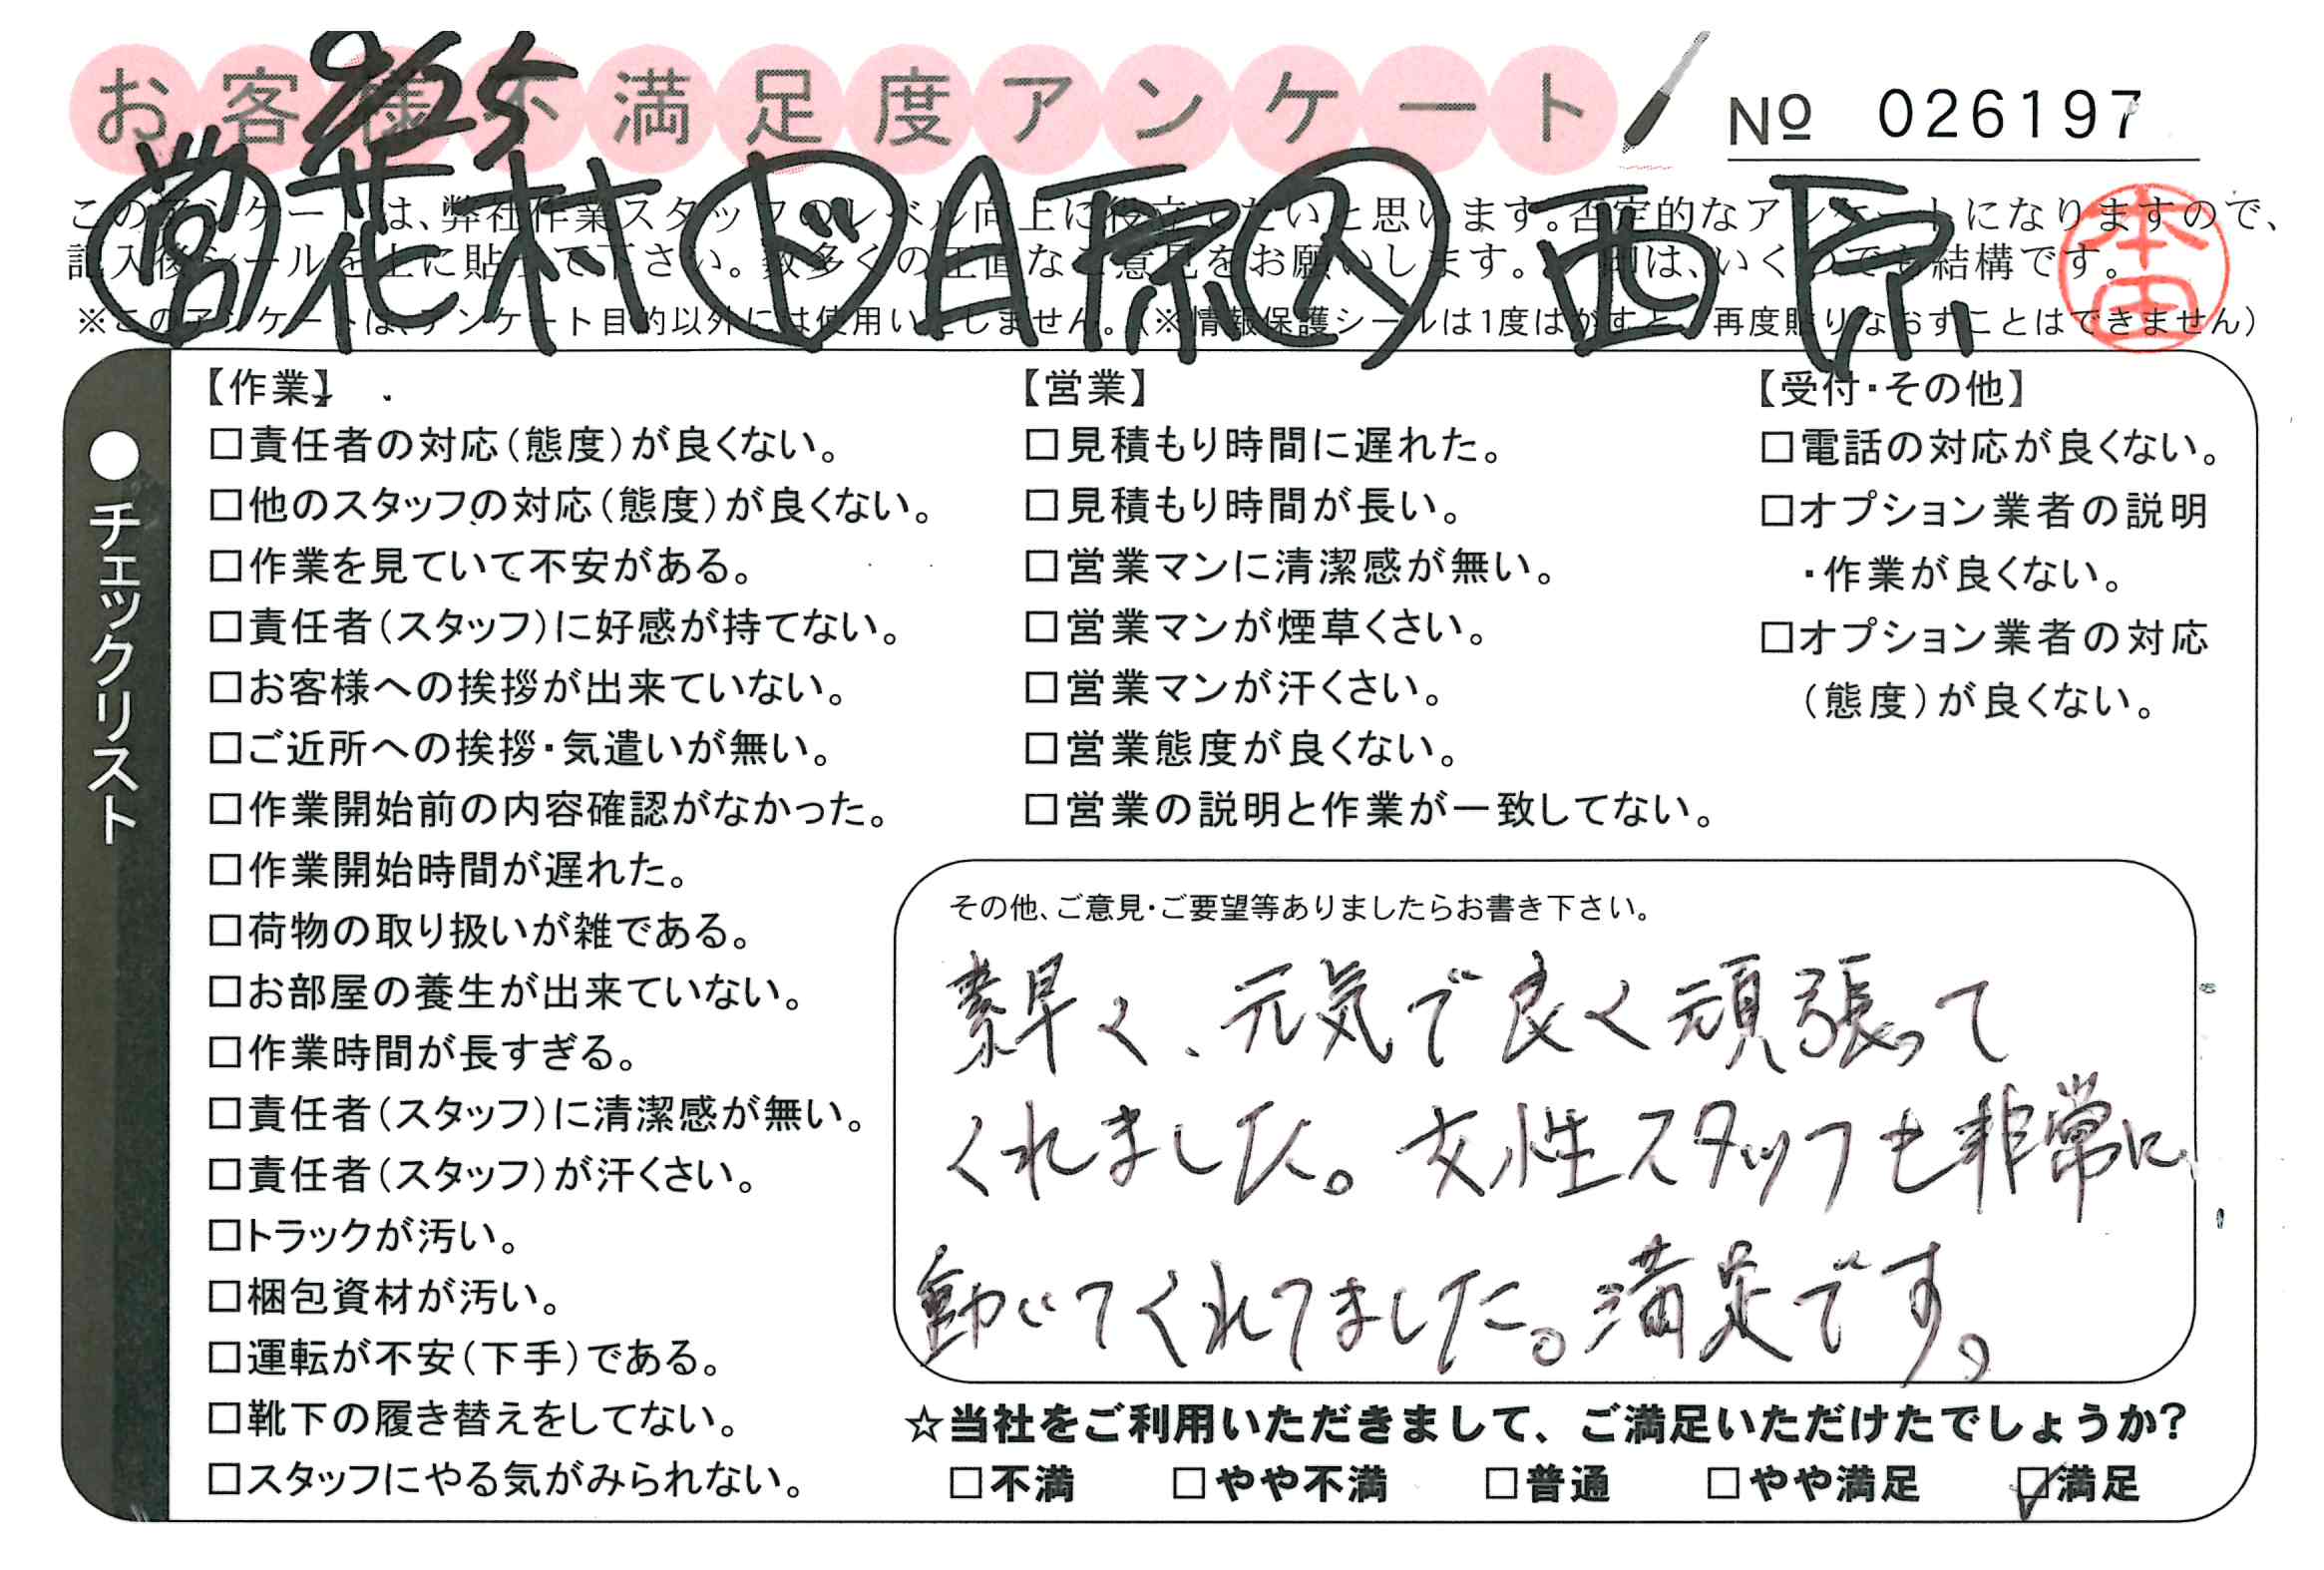 お客様不満足度アンケート
9/25
№ 026197
営 花村 ド 日原 入 西原
本田
このアンケートは、弊社作業スタッフのレベル向上に役立てたいと思います。否定的なアンケートになりますので、
記入後シールを上に貼って下さい。数多くの正直なご意見をお願いします。ご回は、いくつでも結構です。
※このアンケートは、アンケート目的以外には使用いたしません。（※情報保護シールは1度はがすと、再度貼りなおすことはできません）
●チェックリスト
【作業】
□責任者の対応（態度）が良くない。
□他のスタッフの対応（態度）が良くない。
□作業を見ていて不安がある。
□責任者（スタッフ）に好感が持てない。
□お客様への挨拶が出来ていない。
□ご近所への挨拶・気遣いが無い。
□作業開始前の内容確認がなかった。
□作業開始時間が遅れた。
□荷物の取り扱いが雑である。
□お部屋の養生が出来ていない。
□作業時間が長すぎる。
□責任者（スタッフ）に清潔感が無い。
□責任者（スタッフ）が汗くさい。
□トラックが汚い。
□梱包資材が汚い。
□運転が不安（下手）である。
□靴下の履き替えをしてない。
□スタッフにやる気がみられない。
【営業】
□見積もり時間に遅れた。
□見積もり時間が長い。
□営業マンに清潔感が無い。
□営業マンが煙草くさい。
□営業マンが汗くさい。
□営業態度が良くない。
□営業の説明と作業が一致してない。
【受付・その他】
□電話の対応が良くない。
□オプション業者の説明
・作業が良くない。
□オプション業者の対応
（態度）が良くない。
その他、ご意見・ご要望等ありましたらお書き下さい。
素早く、元気で良く頑張って
くれました。女性スタッフも非常に
動いてくれてました。満足です。
☆当社をご利用いただきまして、ご満足いただけたでしょうか？
□不満 □やや不満 □普通 □やや満足 ☑満足